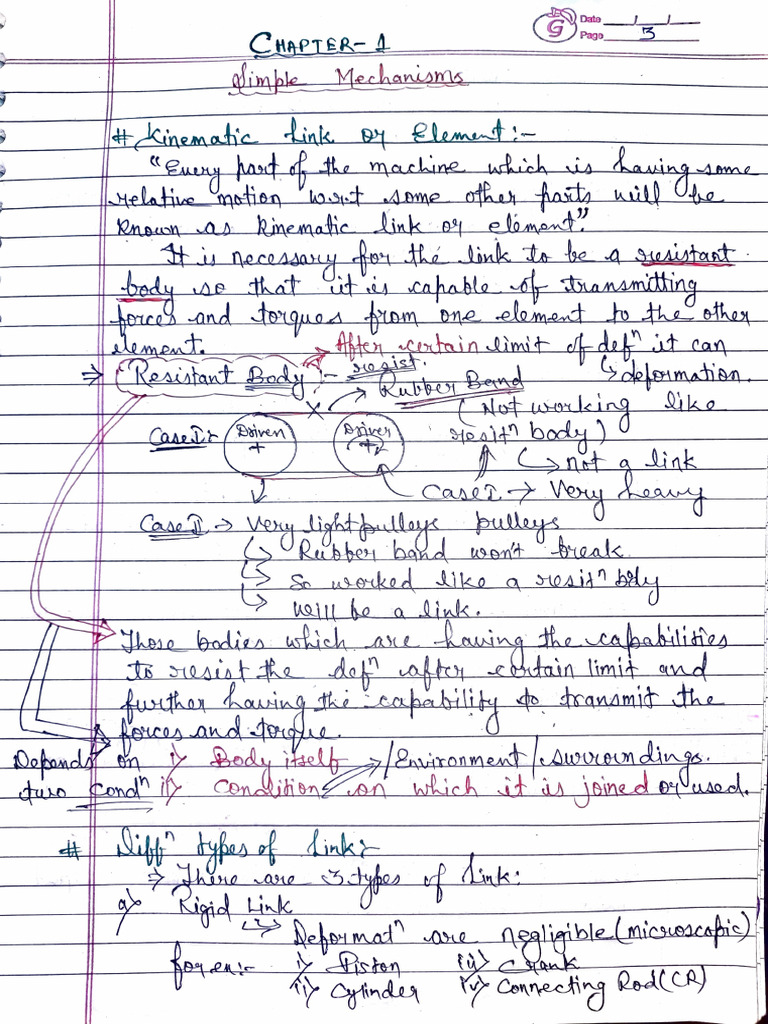 G Date / /
Page 3
CHAPTER-1
Simple Mechanisms
# Kinematic Link or Element:-
"Every part of the machine which is having some
relative motion w.r.t some other parts will be
known as kinematic link or element".
It is necessary for the link to be a resistant
body so that it is capable of transmitting
forces and torques from one element to the other
element.
After certain limit of defⁿ it can
resist.
↳ deformation.
⇒ Resistant Body :-
Rubber Band
(Not working like
resistⁿ body)
↳ not a link
Case I:- Driven + Driver +
Case I → Very heavy
pulleys
Case II → Very light pulleys
↳ Rubber band won't break
↳ So worked like a resistⁿ body
↳ will be a link.
Those bodies which are having the capabilities
to resist the defⁿ after certain limit and
further having the capability to transmit the
forces and torque.
Depends on i) Body itself /Environment/surroundings.
two Condⁿ ii) Condition on which it is joined or used.
# Diffⁿ types of Link:-
⇒ There are 3 types of Link:
a) Rigid Link
↳ Deformatⁿ are negligible (microscopic)
for ex:- i) Piston iii) Crank
ii) Cylinder iv) Connecting Rod (CR)